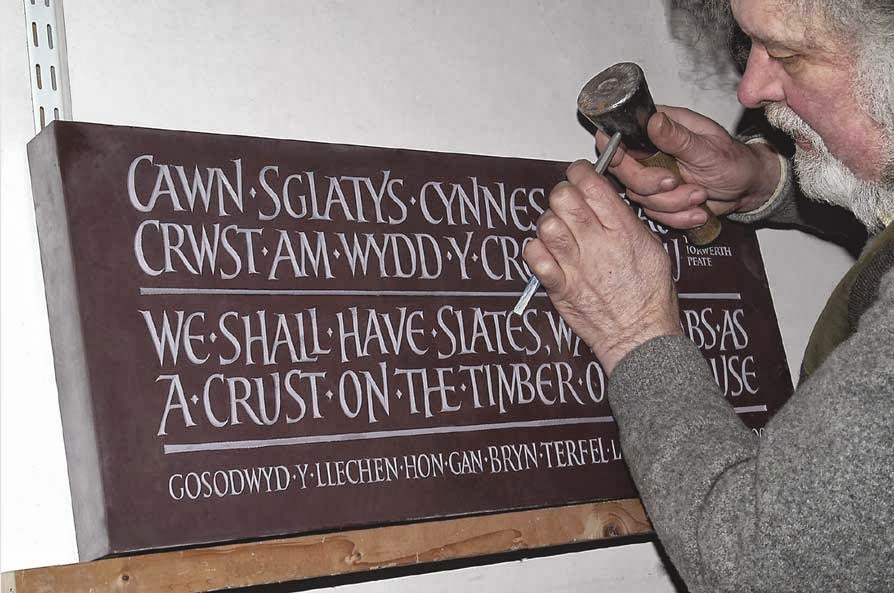 CAWN·SGLATYS·CYNNES
CRWST·AM·WYDD·Y
IORWERTH
PEATE
WE·SHALL·HAVE·SLATES, AS
A·CRUST·ON·THE·TIMBER
GOSODWYD·Y·LLECHEN·HON·GAN·BRYN·TERFEL